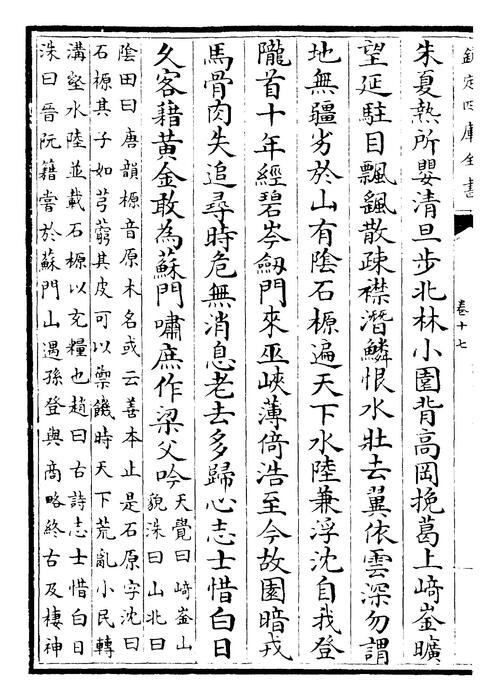 欽定四庫全書
卷十七
朱夏熱所嬰清旦步北林小園背高岡挽葛上崎崟曠
望延駐目飄颻散疎襟潛鱗恨水壯去翼依雲深勿謂
地無疆劣於山有陰石榞遍天下水陸兼浮沈自我登
隴首十年經碧岑劒門來巫峽薄倚浩至今故園暗戎
馬骨肉失追尋時危無消息老去多歸心志士惜白日
久客藉黃金敢為蘇門嘯庶作梁父吟
天覺曰崎崟山
貌洙曰山北曰
陰田曰唐韻榞音原木名或云善本止是石原字沈曰
石榞其子如芎藭其皮可以禦饑時天下荒亂小民轉
溝壑水陸並載石榞以充糧也趙曰古詩志士惜白日
洙曰晉阮籍嘗於蘇門山遇孫登與商略終古及棲神